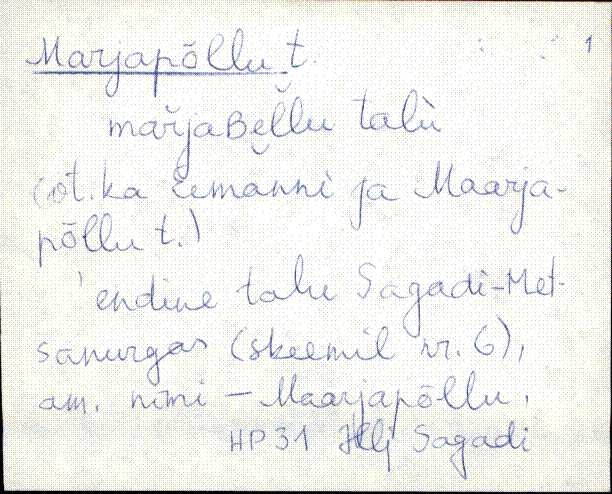 Marjapõllu t. 1
mar̆jaBel̆lu talù
(vt. ka
ja Maarja-
põllu t.)
'endine talu Sagadi-Met-
sanurgas (skeemil nr. 6),
am. nimi - Maarjapõllu.
HP 31 Hlj Sagadi